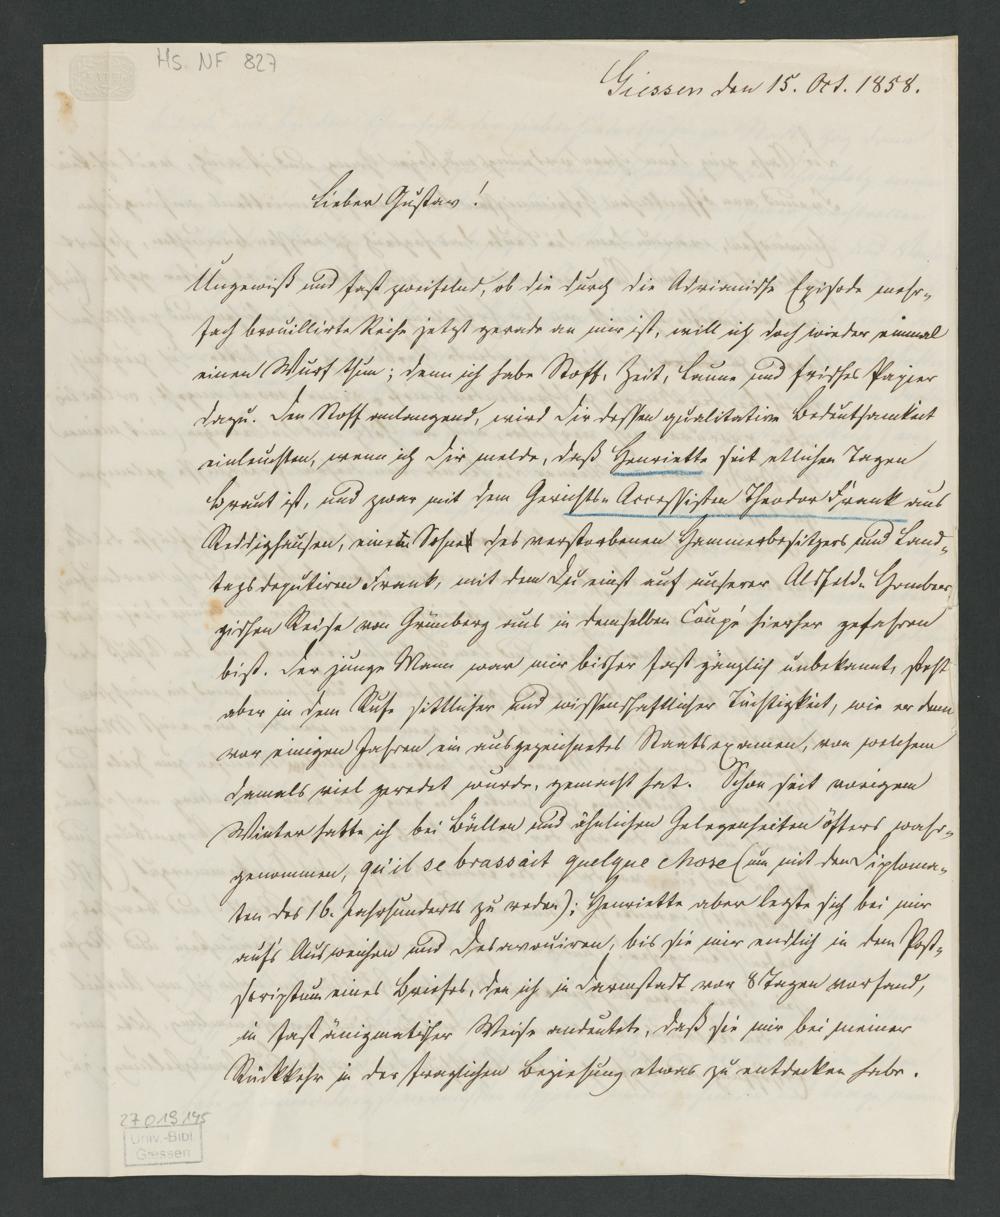 Hs. NF 827
Giessen den 15. Oct. 1858.
Lieber Gustav!
Ungewiß und fast zweifelnd, ob die durch die Adrianische Episode mehr-
fach brouillirte Reihe jetzt gerade an mir ist, will ich doch wieder einmal
einen Wurf thun; denn ich habe Stoff, Zeit, Laune und frisches Papier
dazu. Den Stoff anlangend, wird Dir dessen qualitative Bedeutsamkeit
einleuchten, wenn ich Dir melde, daß Henriette seit etlichen Tagen
Braut ist, und zwar mit dem Gerichts-Accessisten Theodor Frank aus
Reddighausen, einem Sohne des verstorbenen Hammerbesitzers und Land-
tagsdeputiren Frank, mit dem Du einst auf unserer Alsfeld-Homber-
gischen Reise von Grünberg aus in demselben Coupé hierher gefahren
bist. Der junge Mann war mir bisher fast gänzlich unbekannt, steht
aber in dem Rufe sittlicher und wissenschaftlicher Tüchtigkeit, wie er denn
vor einigen Jahren ein ausgezeichnetes Staatsexamen, von welchem
damals viel geredet wurde, gemacht hat. Schon seit vorigem
Winter hatte ich bei Bällen und ähnlichen Gelegenheiten öfters wahr-
genommen, qu'il se brassait quelque chose (um mit den Diploma-
ten des 16. Jahrhunderts zu reden); Henriette aber legte sich bei mir
auf's Ausweichen und Desavouiren, bis sie mir endlich in dem Post-
scriptum eines Briefes, den ich in Darmstadt vor 8 Tagen vorfand,
in fast änigmatischer Weise andeutete, daß sie mir bei meiner
Rückkehr in der fraglichen Beziehung etwas zu entdecken habe.
27 013 145
Univ.-Bibl.
Giessen